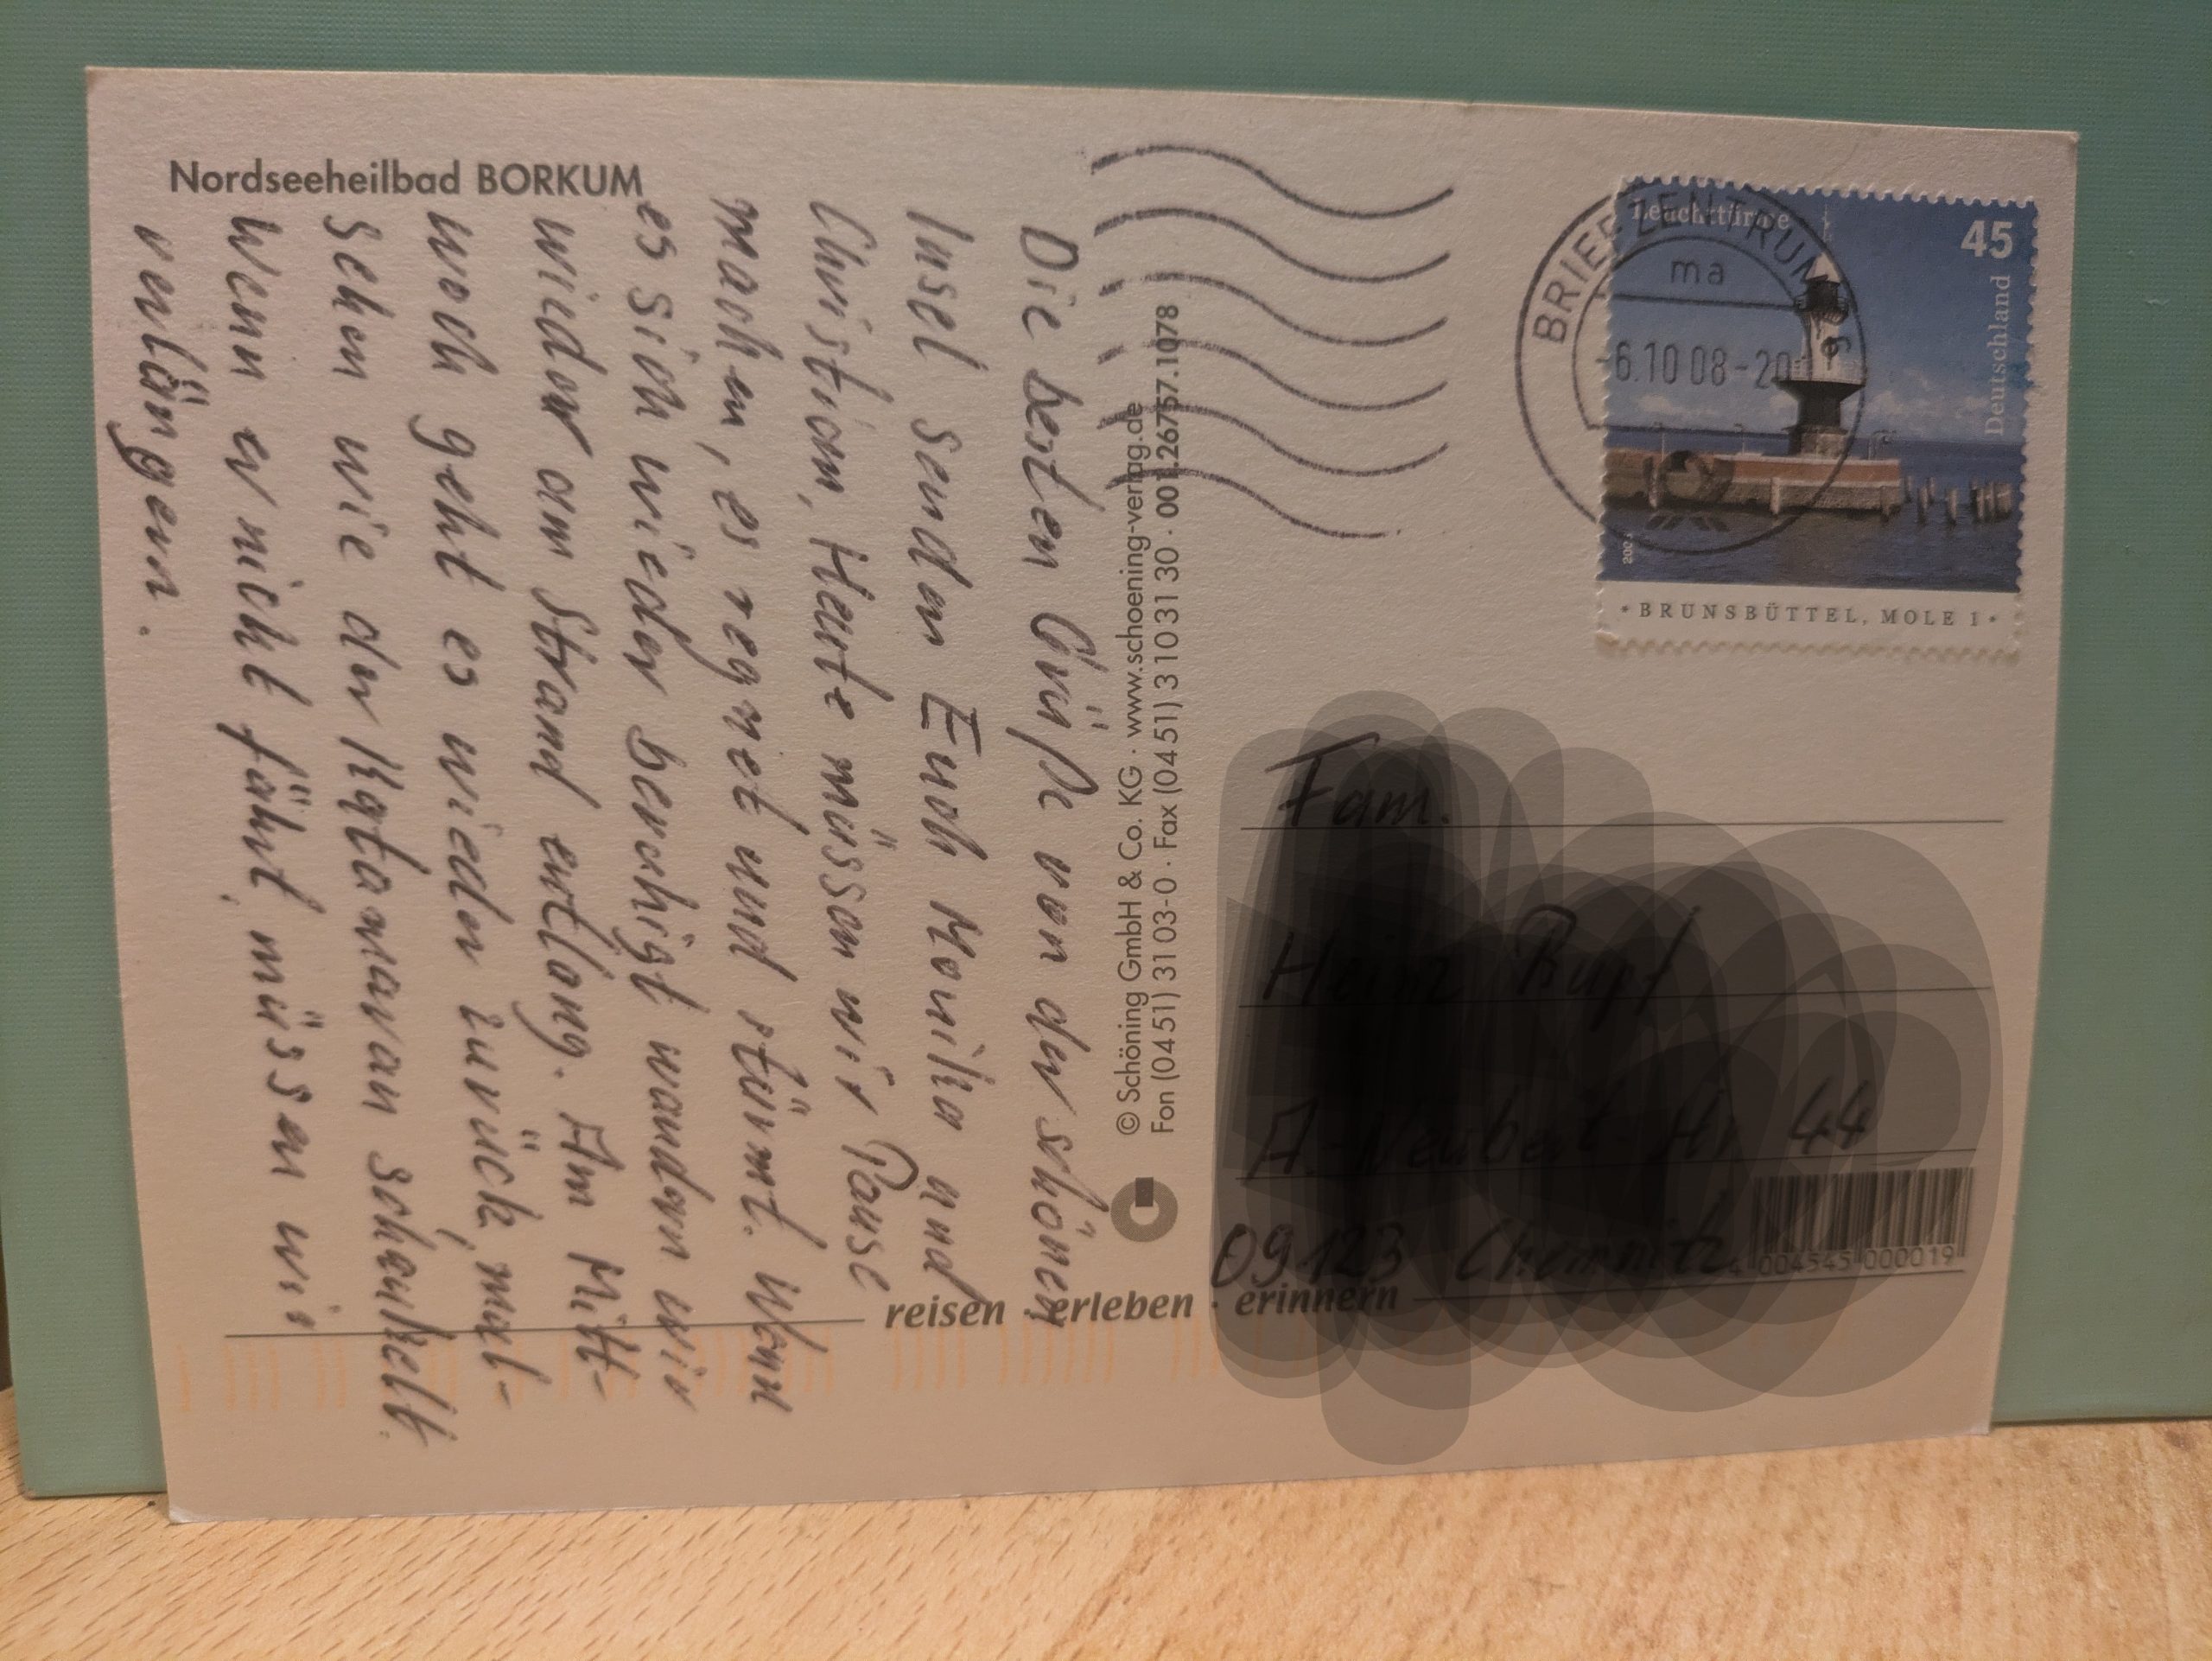 Nordseeheilbad BORKUM
Die besten Grüße von der schönen
Insel senden Euch Monika und
Christian. Heute müssen wir Pause
machen, es regnet und stürmt. Wenn
es sich wieder beruhigt wandern wir
wieder am Strand entlang. Am Mitt-
woch geht es wieder zurück, mal-
sehen wie der Katamaran schaukelt.
Wenn er nicht fährt, müssen wir
verlängern.
© Schöning GmbH & Co. KG · www.schoening-verlag.de
Fon (04 51) 31 03-0 · Fax (04 51) 3 10 31 30 · 001.26757.1078
reisen · erleben · erinnern
BRIEFZENTRUM
ma
6.10 08-20
Leuchttürme
45
Deutschland
• BRUNSBÜTTEL, MOLE 1 •